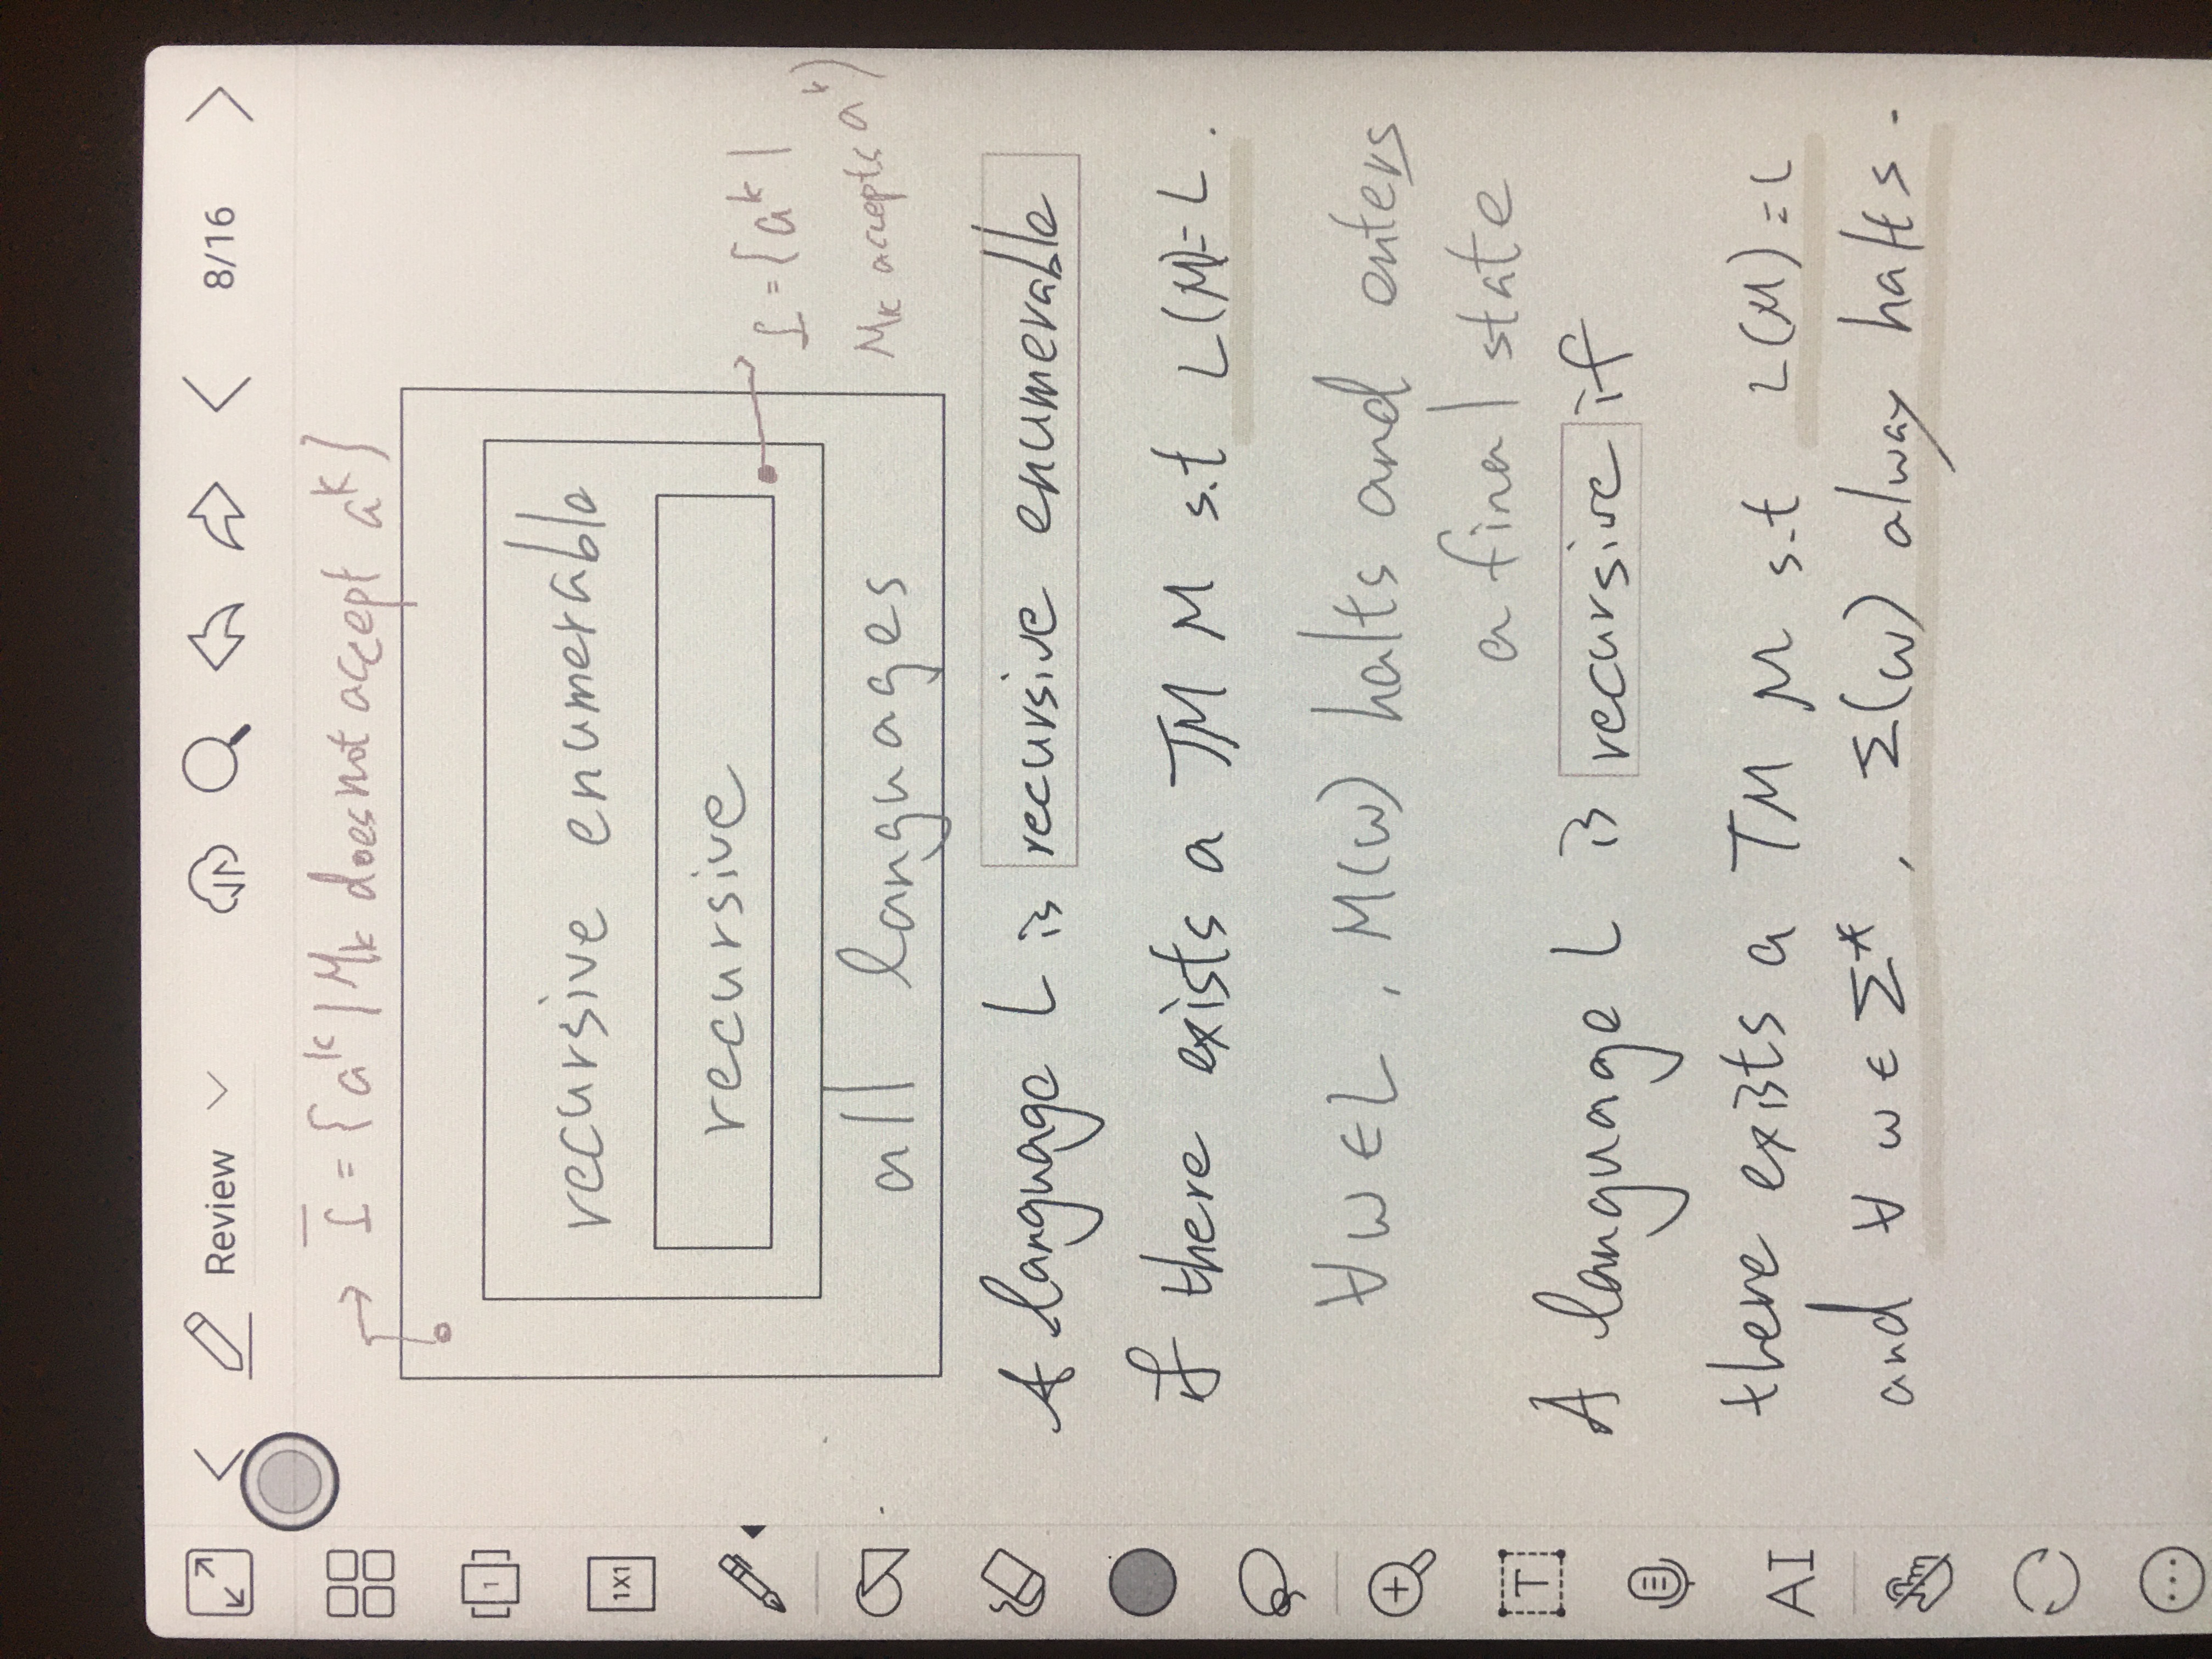 Review
8/16
1
1X1
T
AI
L̅ = {a^k | M_k does not accept a^k}
recursive enumerable
recursive
all languages
L = {a^k |
M_k accepts a^k}
A language L is recursive enumerable
if there exists a TM M s.t L(M)=L.
∀w∈L, M(w) halts and enters
a final state
A language L is recursive if
there exists a TM M s.t L(M)=L
and ∀ w∈Σ*, Σ(w) alway halts.